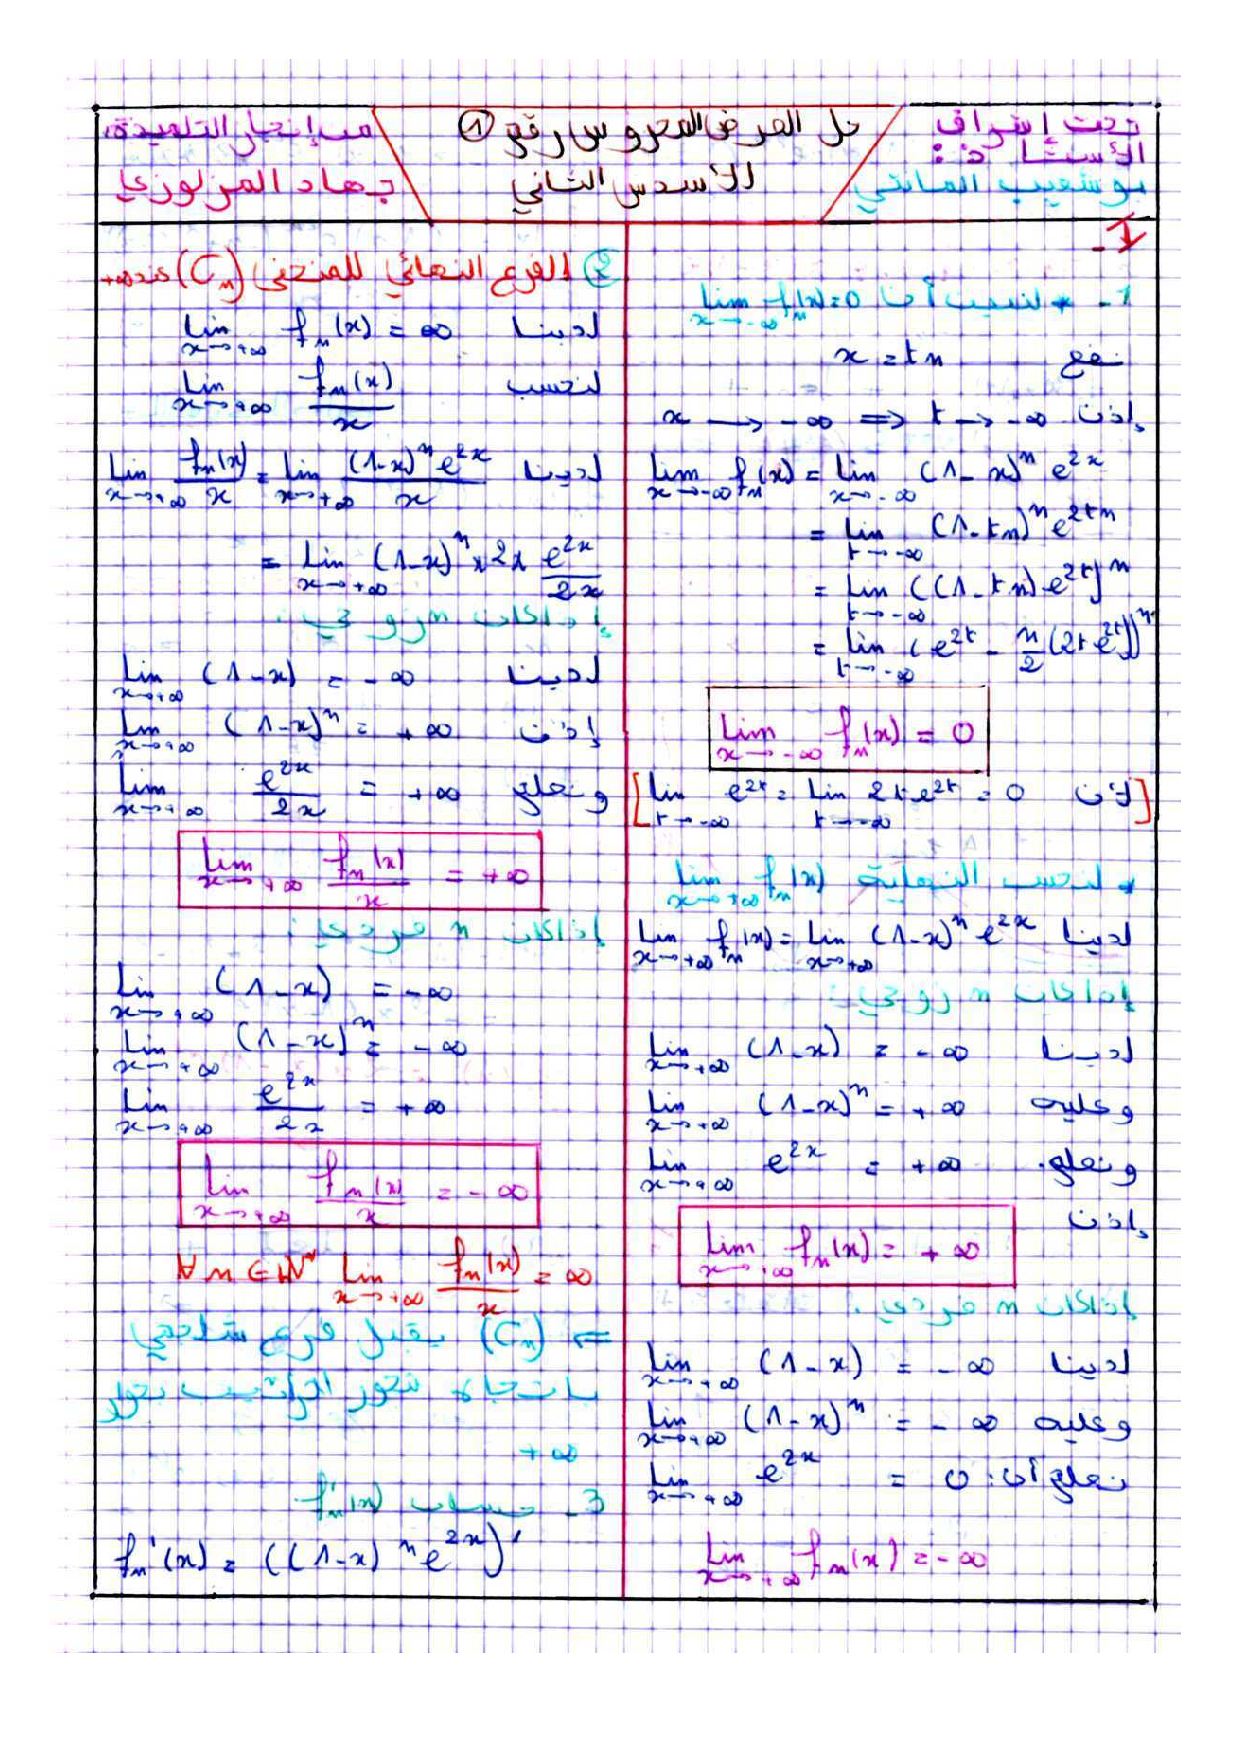 تحت إشراف
الأستاذ:
بوشعيب المانتي
حل الفرض المحروس رقم ①
للأسدس الثاني
من إنجاز التلميذة:
جهاد المرلوزي
I-
1- * لنبين أن lim f_n(x)=0 x→-∞
نضع x = tn
إذن x → -∞ ⇒ t → -∞
lim f_n(x) = lim (1-x)^n e^{2x} x→-∞ x→-∞
= lim (1-tn)^n e^{2tn} t→-∞
= lim ((1-tn) e^{2t})^n t→-∞
= lim (e^{2t} - n/2 (2t e^{2t}))^n t→-∞
lim f_n(x) = 0 x→-∞
[لأن lim e^{2t} = lim 2t e^{2t} = 0 t→-∞ t→-∞]
* لنحسب النهاية lim f_n(x) x→+∞
لدينا lim f_n(x) = lim (1-x)^n e^{2x} x→+∞ x→+∞
إذا كان n زوجي:
لدينا lim (1-x) = -∞ x→+∞
وعليه lim (1-x)^n = +∞ x→+∞
ونعلم. lim e^{2x} = +∞ x→+∞
إذن
lim f_n(x) = +∞ x→+∞
إذا كان n فردي:
لدينا lim (1-x) = -∞ x→+∞
وعليه lim (1-x)^n = -∞ x→+∞
نعلم أن: lim e^{2x} = 0 x→+∞
lim f_n(x) = -∞ x→+∞
② الفرع النهائي للمنحنى (C_n) عند +∞
لدينا lim f_n(x) = ∞ x→+∞
لنحسب lim f_n(x)/x x→+∞
لدينا lim f_n(x)/x = lim (1-x)^n e^{2x}/x x→+∞ x→+∞
= lim (1-x)^n × 2 × e^{2x}/2x x→+∞
إذا كان n زوجي:
لدينا lim (1-x) = -∞ x→+∞
إذن lim (1-x)^n = +∞ x→+∞
ونعلم lim e^{2x}/2x = +∞ x→+∞
lim f_n(x)/x = +∞ x→+∞
إذا كان n فردي:
lim (1-x) = -∞ x→+∞
lim (1-x)^n = -∞ x→+∞
lim e^{2x}/2x = +∞ x→+∞
lim f_n(x)/x = -∞ x→+∞
∀n∈ℕ* lim f_n(x)/x = ∞ x→+∞
⇐ (C_n) يقبل فرع شلجمي
باتجاه محور الأراتيب بجوار
+∞
3- حساب f'_n(x)
f_n'(x) = ((1-x)^n e^{2x})'